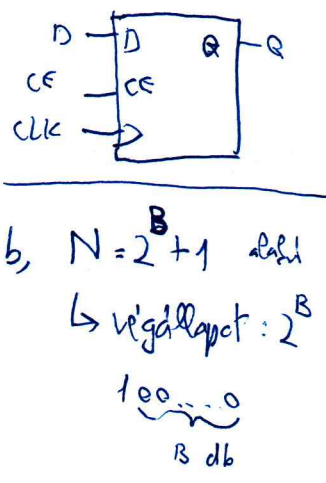 D D Q Q
CE CE
CLK
b, N = 2^B + 1 alakú
↳ végállapot : 2^B
100....0
B db